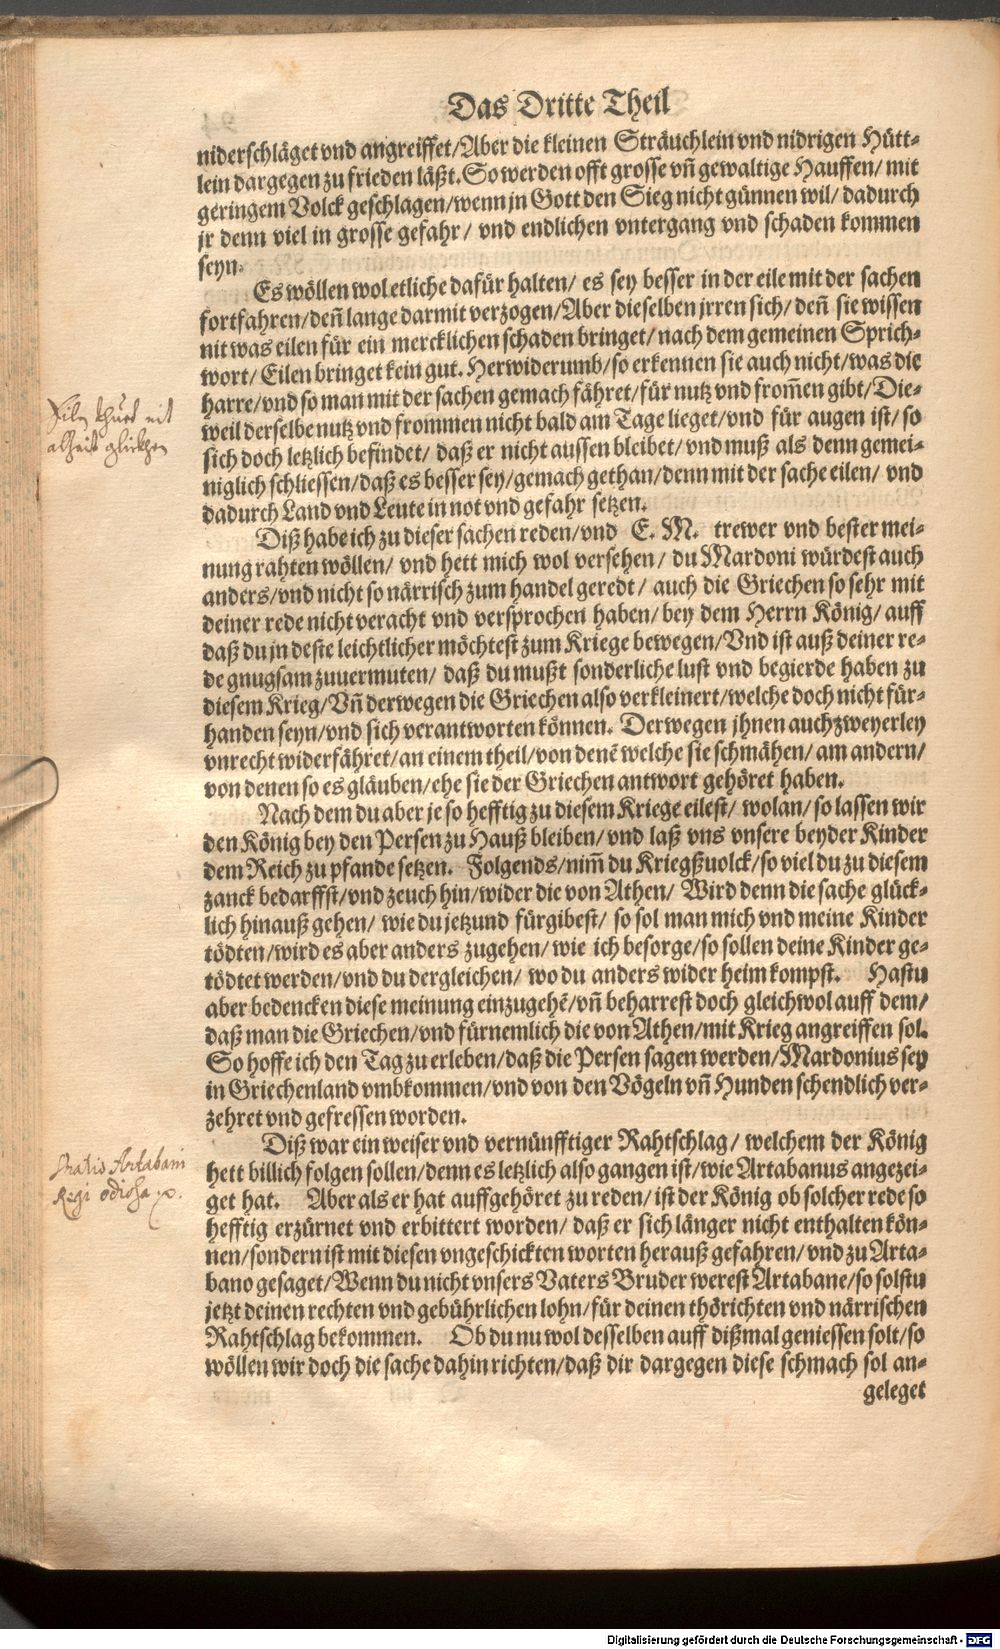 Das Dritte Theil
niderschläget vnd angreiffet/Aber die kleinen Sträuchlein vnd nidrigen Hütt-
lein dargegen zu frieden läßt. So werden offt grosse vñ gewaltige Hauffen/ mit
geringem Volck geschlagen/wenn jn Gott den Sieg nicht günnen wil/ dadurch
jr denn viel in grosse gefahr/ vnd endlichen vntergang vnd schaden kommen
seyn.
Es wöllen wol etliche dafür halten/ es sey besser in der eile mit der sachen
fortfahren/deñ lange darmit verzogen/Aber dieselben jrren sich/ deñ sie wissen
nit was eilen für ein mercklichen schaden bringet/ nach dem gemeinen Sprich-
wort/ Eilen bringet kein gut. Herwiderumb/so erkennen sie auch nicht/was die
harre/vnd so man mit der sachen gemach fähret/für nutz vnd from̃en gibt/ Die-
weil derselbe nutz vnd frommen nicht bald am Tage lieget/vnd für augen ist/ so
sich doch letzlich befindet/ daß er nicht aussen bleibet/ vnd muß als denn gemei-
niglich schliessen/daß es besser sey/gemach gethan/denn mit der sache eilen/ vnd
dadurch Land vnd Leute in not vnd gefahr setzen.
Diß habe ich zu dieser sachen reden/vnd E. M. trewer vnd bester mei-
nung rahten wöllen/ vnd hett mich wol versehen/ du Mardoni würdest auch
anders/vnd nicht so närrisch zum handel geredt/ auch die Griechen so sehr mit
deiner rede nicht veracht vnd versprochen haben/ bey dem Herrn König/ auff
daß du jn deste leichtlicher möchtest zum Kriege bewegen/Vnd ist auß deiner re-
de gnugsam zuuermuten/ daß du mußt sonderliche lust vnd begierde haben zu
diesem Krieg/Vñ derwegen die Griechen also verkleinert/welche doch nicht für-
handen seyn/vnd sich verantworten können. Derwegen jhnen auch zweyerley
vnrecht widerfähret/an einem theil/von denẽ welche sie schmähen/ am andern/
von denen so es gläuben/ehe sie der Griechen antwort gehöret haben.
Nach dem du aber je so hefftig zu diesem Kriege eilest/ wolan/ so lassen wir
den König bey den Persen zu Hauß bleiben/ vnd laß vns vnsere beyder Kinder
dem Reich zu pfande setzen. Folgends/nim̃ du Kriegßuolck/so viel du zu diesem
zanck bedarffst/vnd zeuch hin/wider die von Athen/ Wird denn die sache glück-
lich hinauß gehen/ wie du jetzund fürgibest/ so sol man mich vnd meine Kinder
tödten/wird es aber anders zugehen/ wie ich besorge/so sollen deine Kinder ge-
tödtet werden/vnd du dergleichen/ wo du anders wider heim kompst. Hastu
aber bedencken diese meinung einzugehẽ/vñ beharrest doch gleichwol auff dem/
daß man die Griechen/vnd fürnemlich die von Athen/mit Krieg angreiffen sol.
So hoffe ich den Tag zu erleben/daß die Persen sagen werden/Mardonius sey
in Griechenland vmbkommen/vnd von den Vögeln vñ Hunden schendlich ver-
zehret vnd gefressen worden.
Diß war ein weiser vnd vernünfftiger Rahtschlag/ welchem der König
hett billich folgen sollen/denn es letzlich also gangen ist/wie Artabanus angezei-
get hat. Aber als er hat auffgehöret zu reden/ ist der König ob solcher rede so
hefftig erzürnet vnd erbittert worden/ daß er sich länger nicht enthalten kön-
nen/sondern ist mit diesen vngeschickten worten herauß gefahren/ vnd zu Arta-
bano gesaget/Wenn du nicht vnsers Vaters Bruder werest Artabane/so solstu
jetzt deinen rechten vnd gebührlichen lohn/für deinen thörichten vnd närrischen
Rahtschlag bekommen. Ob du nu wol desselben auff dißmal geniessen solt/so
wöllen wir doch die sache dahin richten/daß dir dargegen diese schmach sol an-
geleget
Eiln thuet nit
Oratio Artabani
Regi odiosa
Digitalisierung gefördert durch die Deutsche Forschungsgemeinschaft - DFG